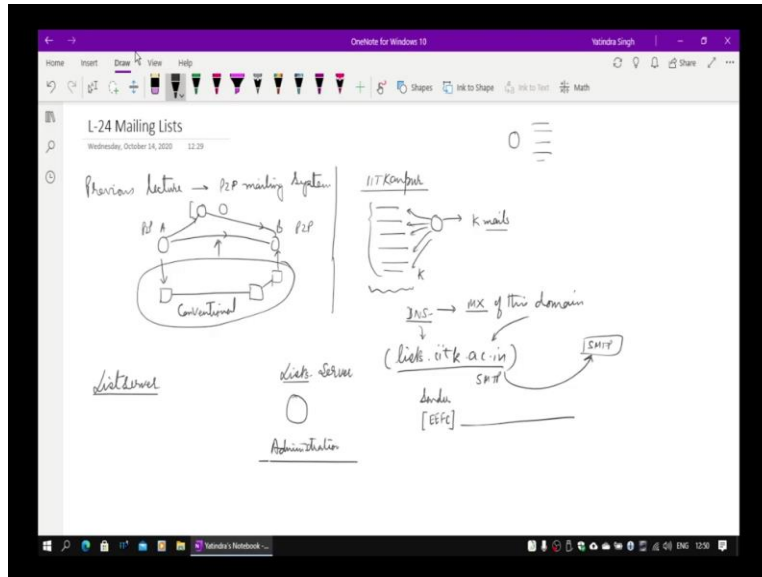 OneNote for Windows 10
Yatindra Singh
Home Insert Draw View Help
Share
Shapes Ink to Shape Ink to Text Math
L-24 Mailing Lists
Wednesday, October 14, 2020 12:29
Previous lecture → P2P mailing system
IIT Kanpur
A B P2P
K mails
K
Conventional
DNS → MX of this domain
(lists.iitk.ac.in)
SMTP
SMTP
ListServer
Lists Server
Sender
[EEFC]
Administration
Yatindra's Notebook -...
ENG 12:50